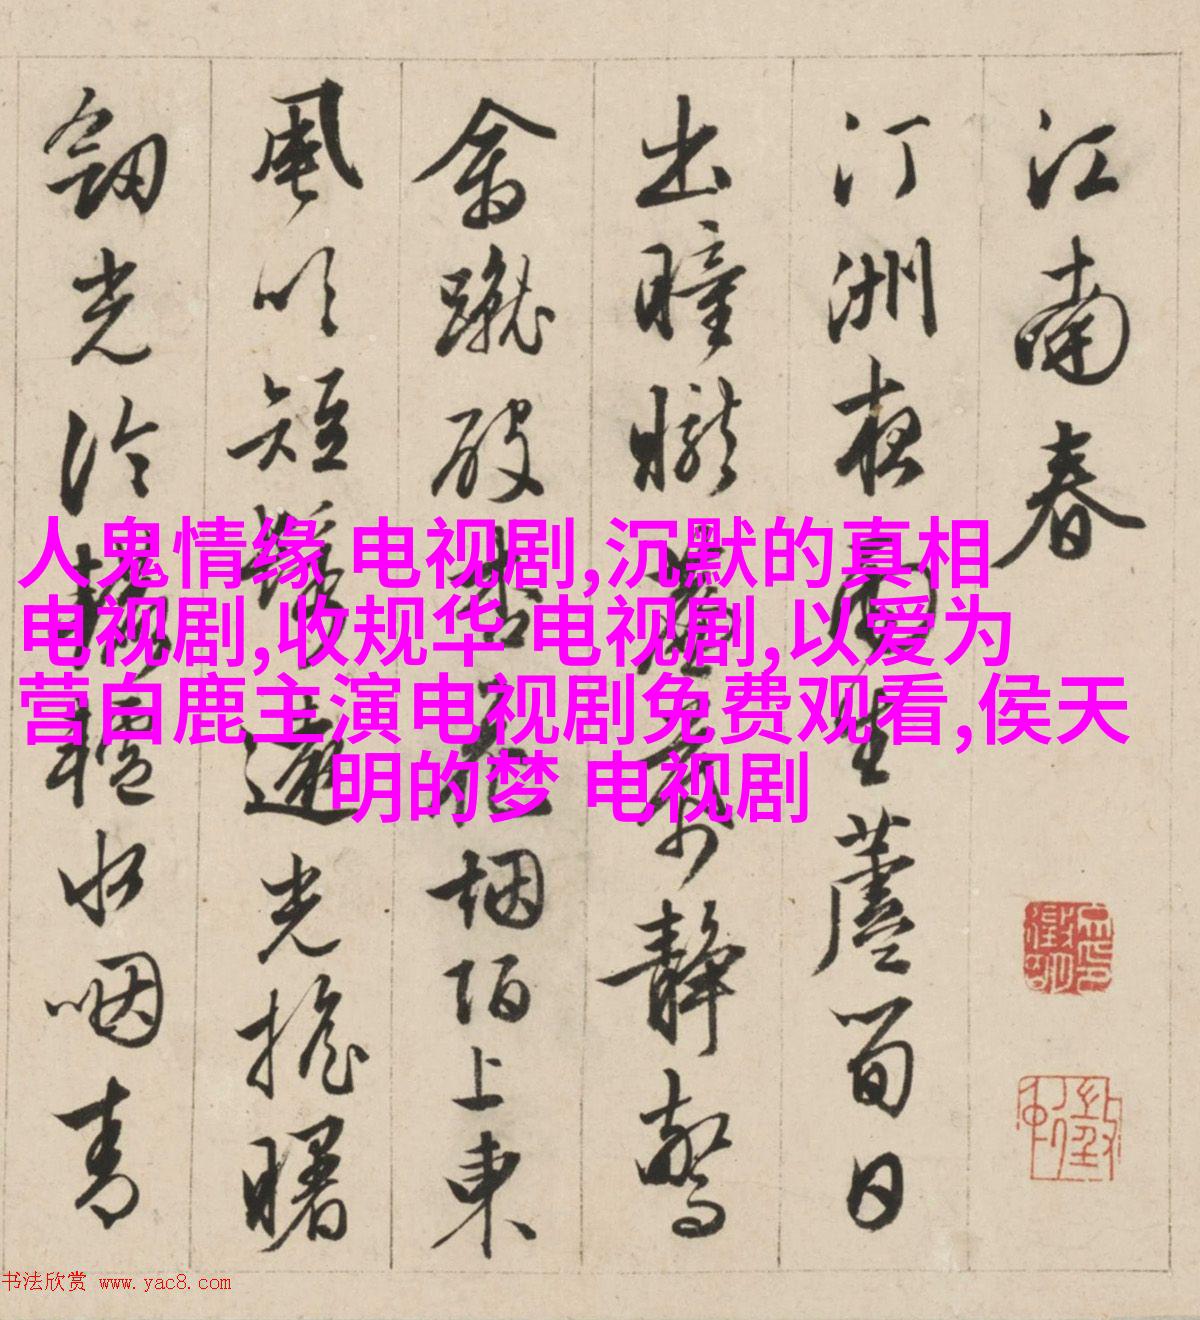 江南春
汀洲夜雨生蘆筍日
出曈曨簾幕靜驚
禽蹴破杏花烟陌上東
風吹短鬢遠光搖曙
劒光冷水咽青
人鬼情缘 电视剧,沉默的真相
电视剧,收规华 电视剧,以爱为
营白鹿主演电视剧免费观看,侯天
明的梦 电视剧
书法欣赏 www.yac8.com